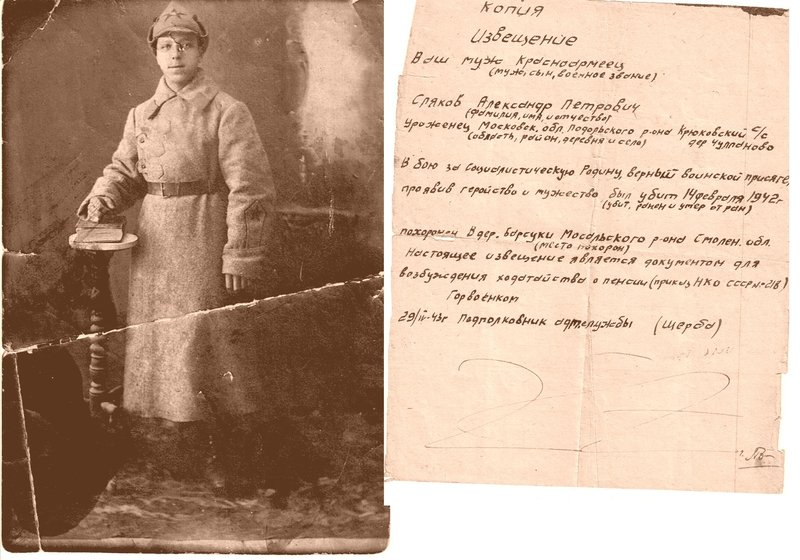 Копия
Извещение
Ваш муж Красноармеец
(муж, сын, военное звание)
Сляков Александр Петрович
(фамилия, имя и отчество)
Уроженец Московск. обл. Подольского р-она Крюковский с/с
(область, район, деревня и село) дер Чулпаново
В бою за Социалистическую Родину, верный воинской присяге,
проявив геройство и мужество был убит 14 февраля 1942г
(убит, ранен и умер от ран)
похоронен В дер. Барсуки Мосальского р-она Смолен. обл.
(место похорон)
Настоящее извещение является документом для
возбуждения ходатайства о пенсии (приказ НКО СССР № 218)
Горвоенком
29/IV-43г Подполковник адм.службы (Щерба)